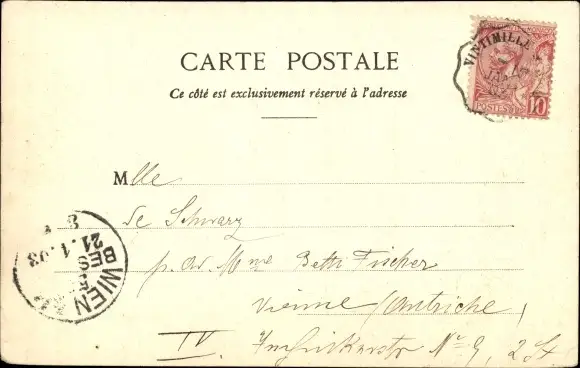 CARTE POSTALE
Ce côté est exclusivement réservé à l'adresse
VINTIMILLE
POSTES 10
Mlle
de Schwarz
p. ad. Mme Betti Fischer
Vienne (Autriche)
IV. No 9, 2 St
WIEN
BE
21.1.03